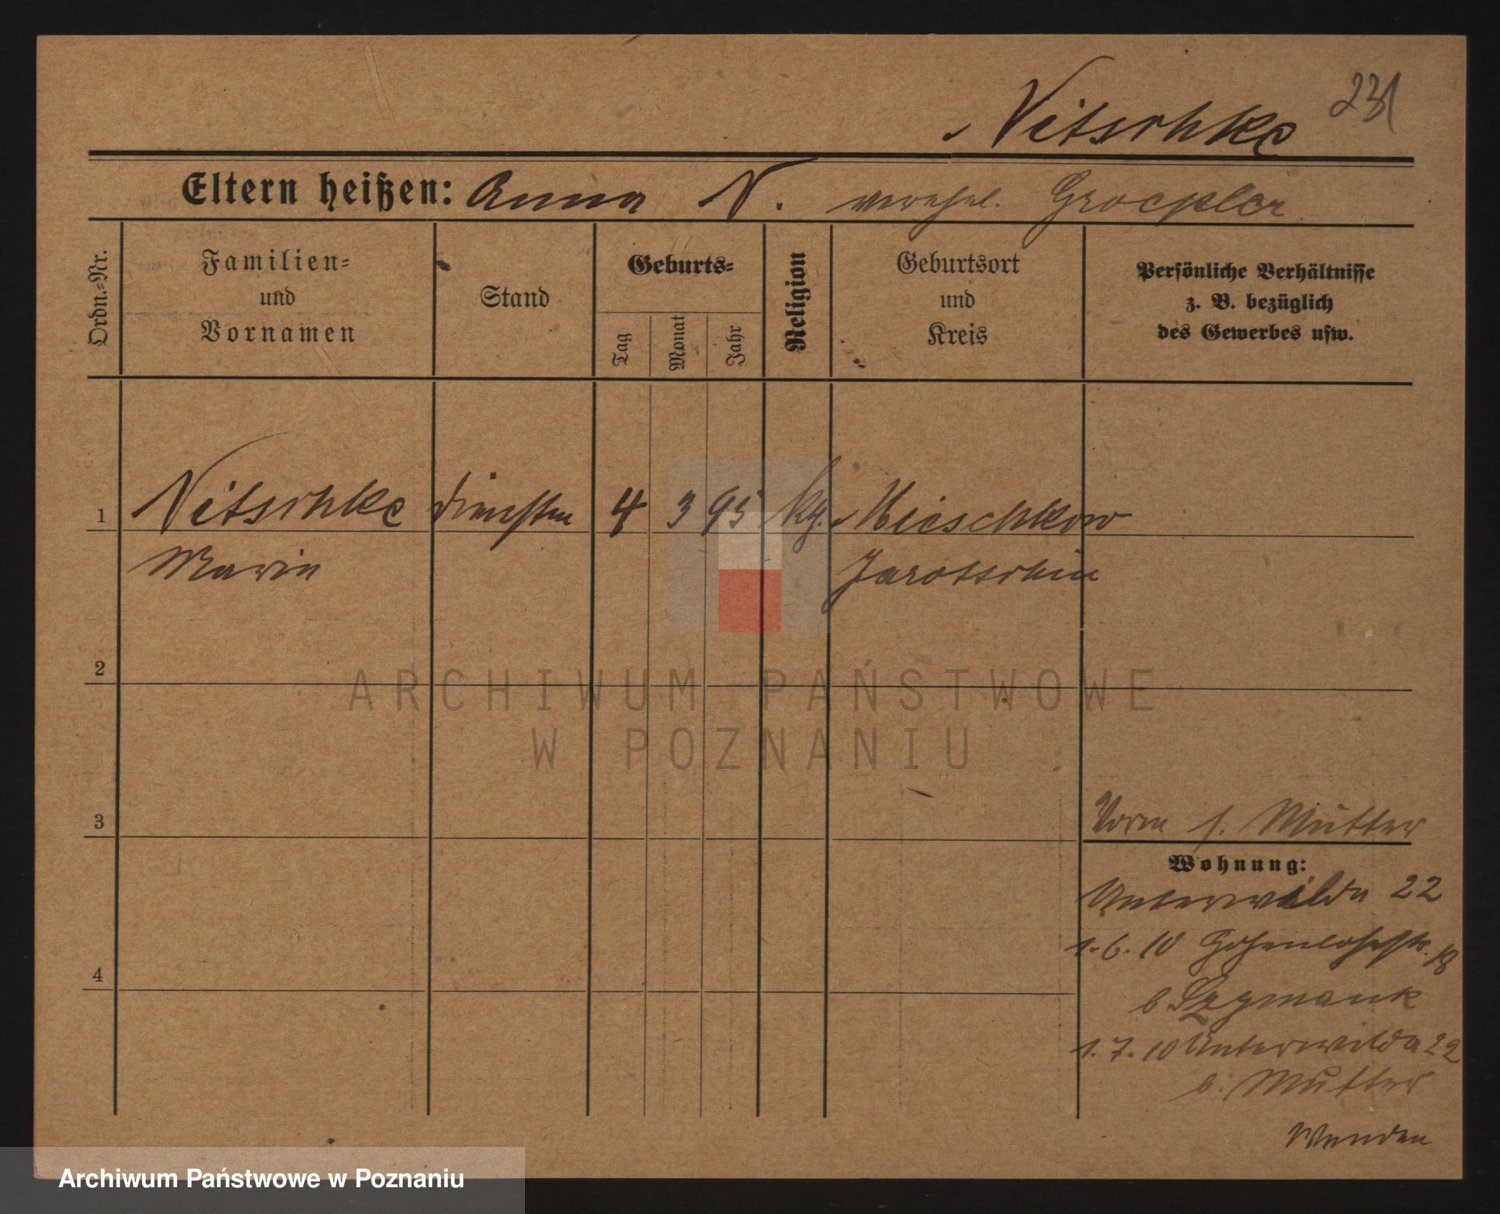 231
Nitschke
Eltern heißen: Anna N. verehel. Groepler
Ordn.-Nr.
Familien-
und
Vornamen
Stand
Geburts-
Tag
Monat
Jahr
Religion
Geburtsort
und
Kreis
Persönliche Verhältnisse
z. B. bezüglich
des Gewerbes usw.
1 Nitschke 4 3 95 kg. Mieschkow
Marie Jarotschin
2
3
4
Vorm s. Mutter
Wohnung:
Unterwilda 22
1.6.10 Hohenlohestr. 18
b
1.7.10 Unterwilda 22
b. Mutter
Wenden
ARCHIWUM PAŃSTWOWE
W POZNANIU
Archiwum Państwowe w Poznaniu